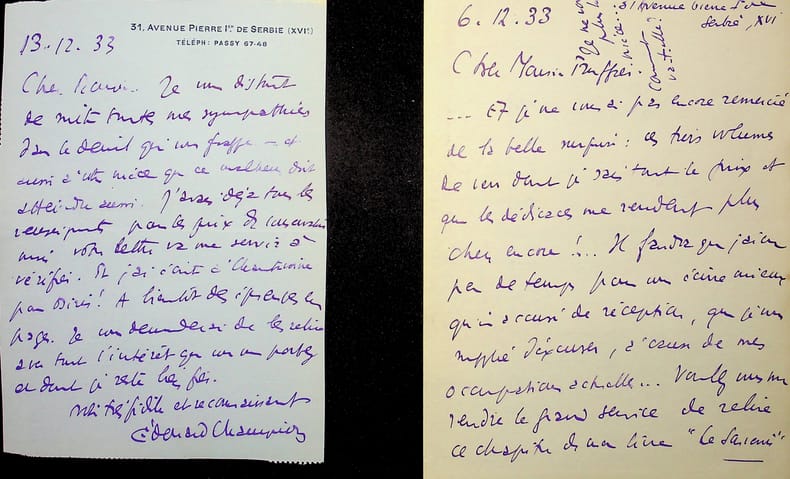 31, AVENUE PIERRE Iᵉʳ DE SERBIE (XVIᵉ)
TÉLÉPH: PASSY 67-48
13.12.33
Cher Je vous
de suite toutes mes sympathies
dans le deuil qui vous frappe — et
aussi votre nièce que ce malheur doit
atteindre aussi. J'avais déjà tous les
pour les prix de
aussi votre lettre va me servir à
vérifier. Et j'ai écrit à Chantavoine
pour Osiris! A bientôt des épreuves en
pages. Je vous demanderai de les relire
avec tout l'intérêt que vous me portez
et dont je reste très fier.
votre très fidèle et reconnaissant
Édouard Champion
6.12.33
31 Avenue Pierre 1er de
Serbie, XVI
Je ne
plus
nièce.
Comment
va-t-elle?
Cher Maurice
... Et je ne vous ai pas encore remercié
de la belle surprise: ces trois volumes
de vous dont je sais tout le prix et
que les dédicaces me rendent plus
chers encore!... Il faudra que j'aie un
peu de temps pour vous écrire mieux
qu'un accusé de réception, que je vous
supplie d'excuser, à cause de mes
occupations actuelles... Voulez-vous me
rendre le grand service de relire
ce chapitre de mon livre "Le